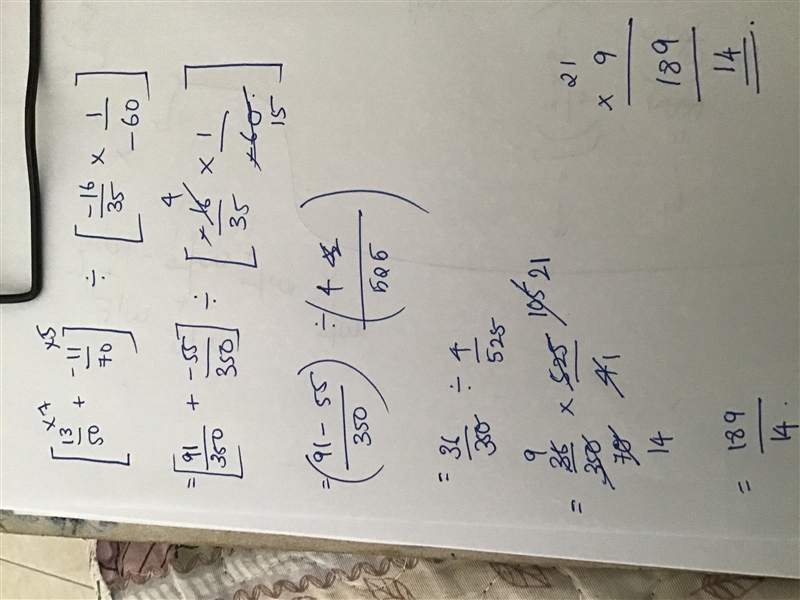 [13/50 ×7 + -11/70 ×5] ÷ [-16/35 × 1/-60]
= [91/350 + -55/350] ÷ [-16/35 4 × 1/-60 15]
= (91 - 55/350) ÷ (4/525)
= 36/350 ÷ 4/525
= 9 36/350 70 14 × 525/4 1 105 21
= 189/14
21
× 9
189
14